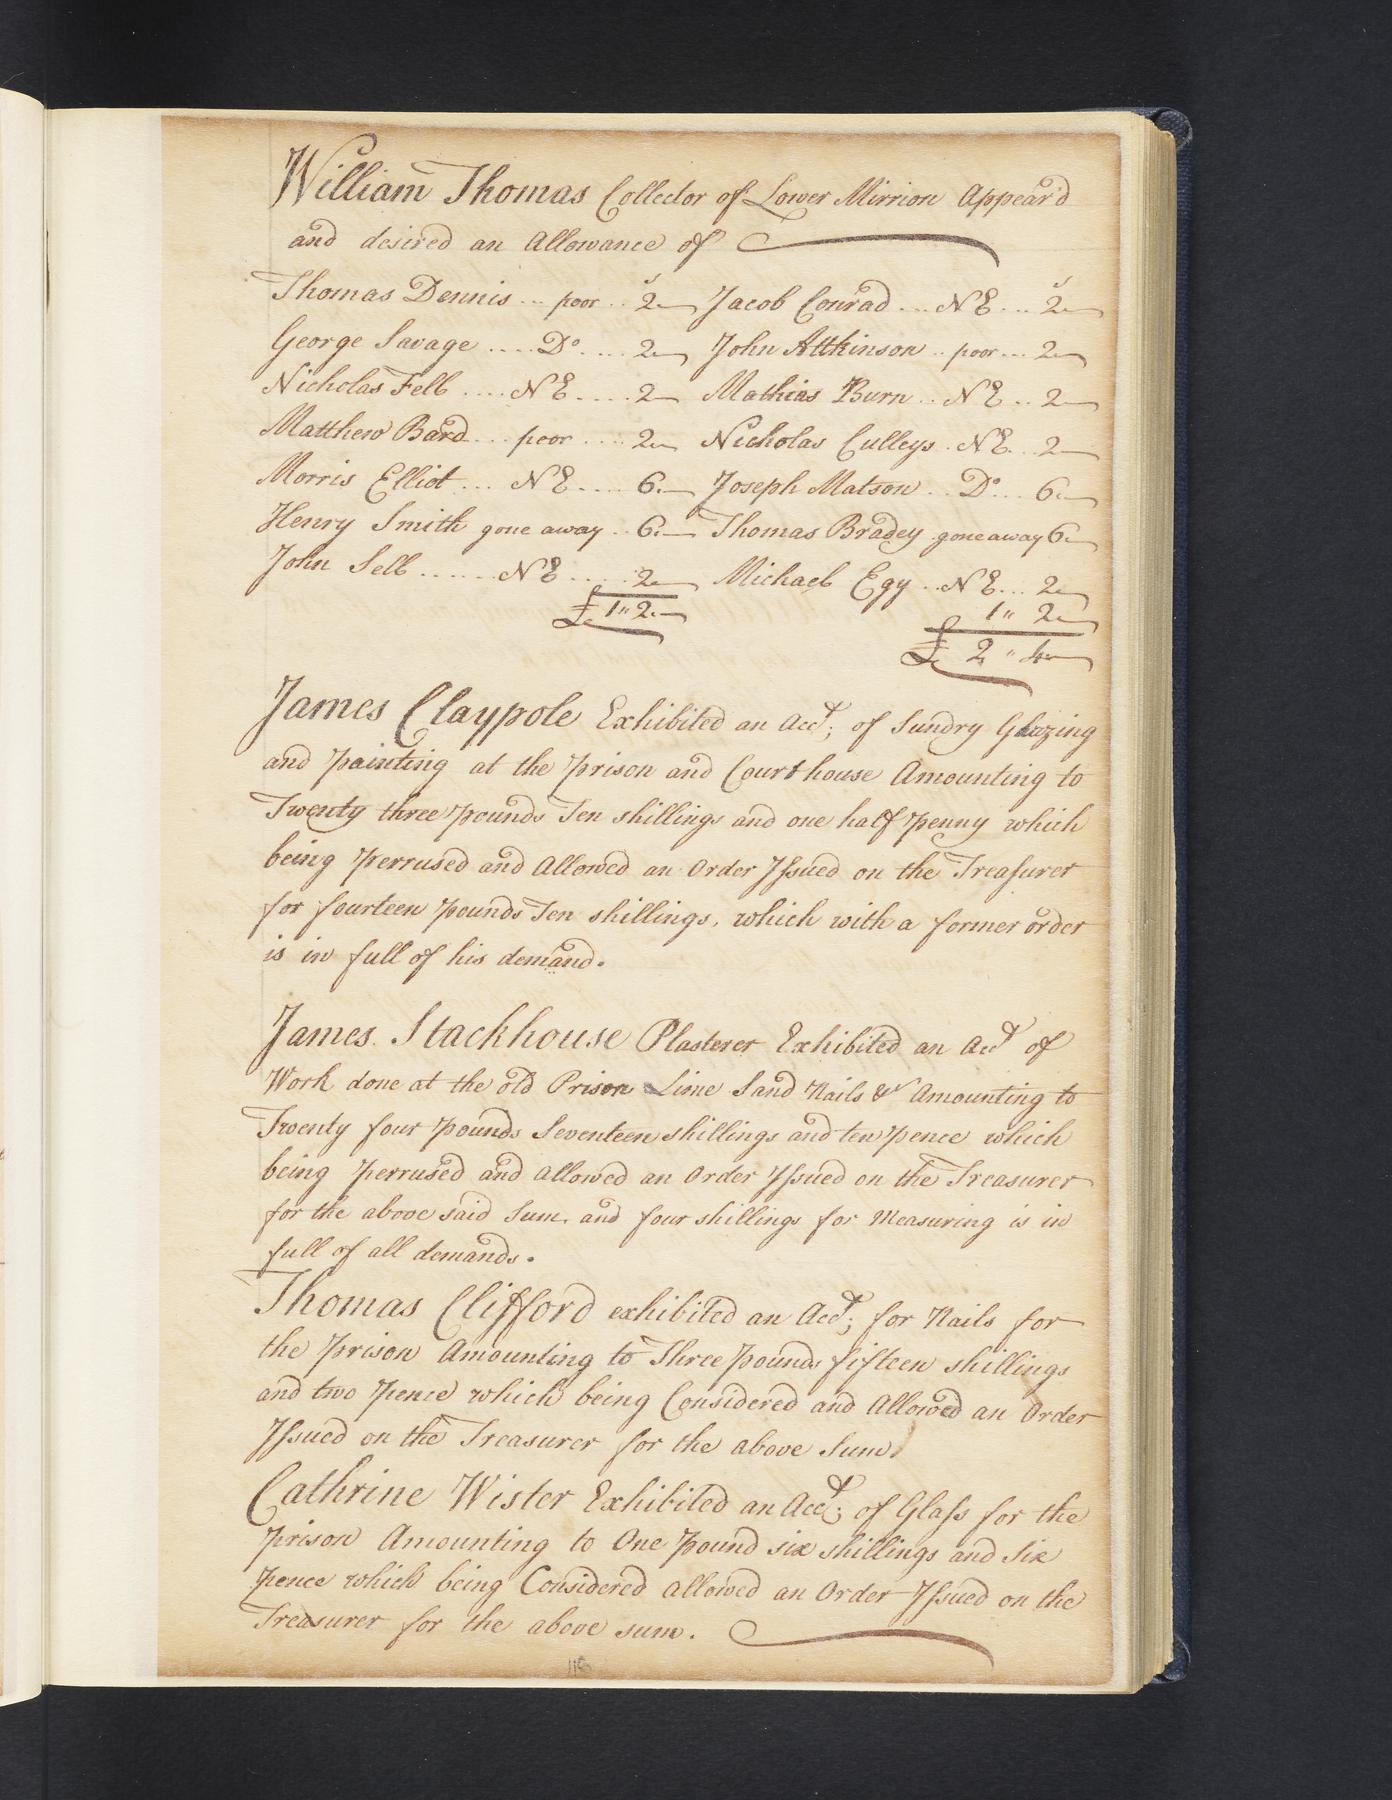 William Thomas Collector of Lower Mirrion Appear'd
and desired an Allowance of
Thomas Dennis ... poor .. 2 s Jacob Conrad ... N E ... 2 s
George Savage .... Do .... 2 John Attkinson .. poor ... 2
Nicholas Fell .... N E .... 2 Mathias Burn .. N E .. 2
Matthew Bard ... poor .... 2 Nicholas Culleys . N E ... 2
Morris Elliot ... N E .... 6 Joseph Matson .. Do ... 6
Henry Smith gone away .. 6 Thomas Bradey gone away 6
John Sell ...... N E .... 2 Michael Egy .. N E ... 2
£ 1 " 2 1 " 2
£ 2 " 4
James Claypole Exhibited an Acct; of Sundry Glazing
and painting at the prison and Court house Amounting to
Twenty three pounds Ten shillings and one half penny which
being perrused and Allowed an Order Issued on the Treasurer
for fourteen pounds Ten shillings, which with a former order
is in full of his demand.
James Stackhouse Plasterer Exhibited an Acct of
Work done at the old Prison Lime Sand Nails &c Amounting to
Twenty four pounds Seventeen shillings and ten pence which
being perrused and allowed an Order Issued on the Treasurer
for the above said Sum, and four shillings for Measuring is in
full of all demands.
Thomas Clifford exhibited an Acct; for Nails for
the prison Amounting to Three pounds fifteen shillings
and two pence which being Considered and Allowed an Order
Issued on the Treasurer for the above Sum.
Cathrine Wister Exhibited an Acct; of Glass for the
prison Amounting to One pound six shillings and Six
pence which being Considered allowed an Order Issued on the
Treasurer for the above sum.
116